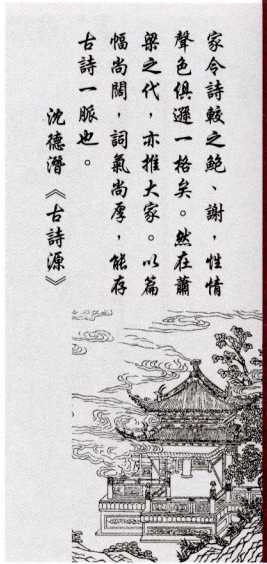 家令詩較之鮑、謝，性情
聲色俱遜一格矣。然在蕭
梁之代，亦推大家。以篇
幅尚闊，詞氣尚厚，能存
古詩一脈也。
沈德潛《古詩源》